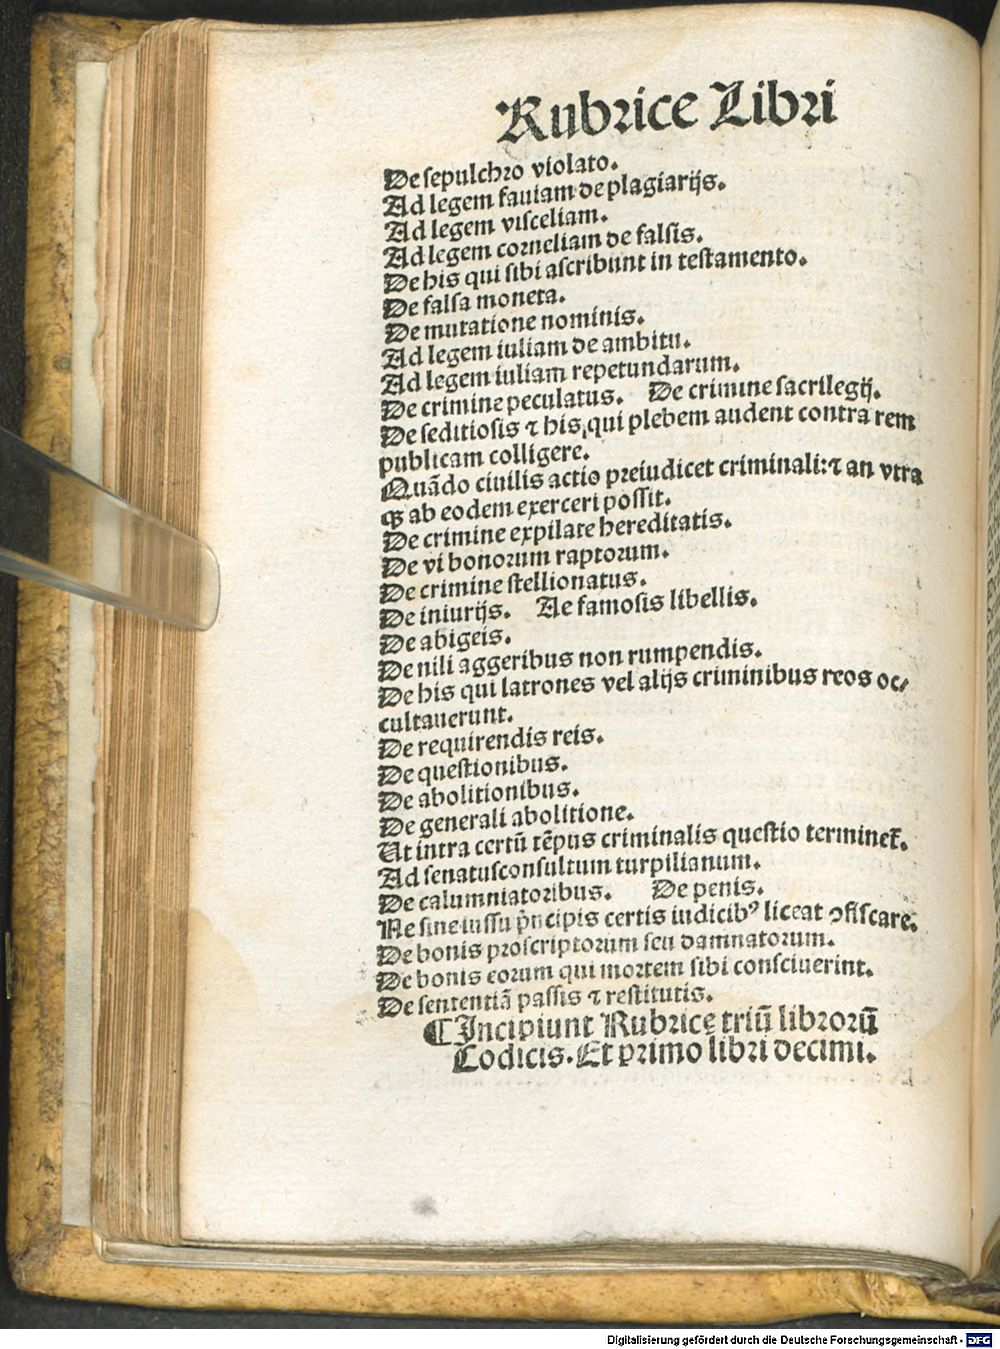 Rubrice Libri
De sepulchro violato.
Ad legem fauiam de plagiarijs.
Ad legem visceliam.
Ad legem corneliam de falsis.
De his qui sibi ascribunt in testamento.
De falsa moneta.
De mutatione nominis.
Ad legem iuliam de ambitu.
Ad legem iuliam repetundarum.
De crimine peculatus. De crimine sacrilegij.
De seditiosis ⁊ his, qui plebem audent contra rem
publicam colligere.
Quãdo ciuilis actio preiudicet criminali:⁊ an vtra
qꝫ ab eodem exerceri possit.
De crimine expilate hereditatis.
De vi bonorum raptorum.
De crimine stellionatus.
De iniurijs. Ae famosis libellis.
De abigeis.
De nili aggeribus non rumpendis.
De his qui latrones vel alijs criminibus reos oc⸗
cultauerunt.
De requirendis reis.
De questionibus.
De abolitionibus.
De generali abolitione.
Ut intra certũ tẽpus criminalis questio terminet̃.
Ad senatusconsultum turpilianum.
De calumniatoribus. De penis.
Ne sine iussu p̃ncipis certis iudicibꝰ liceat ↄfiscare.
De bonis proscriptorum seu damnatorum.
De bonis eorum qui mortem sibi consciuerint.
De sententiã passis ⁊ restitutis.
¶ Incipiunt Rubrice triũ librorũ
Codicis. Et primo libri decimi.
Digitalisierung gefördert durch die Deutsche Forschungsgemeinschaft - DFG